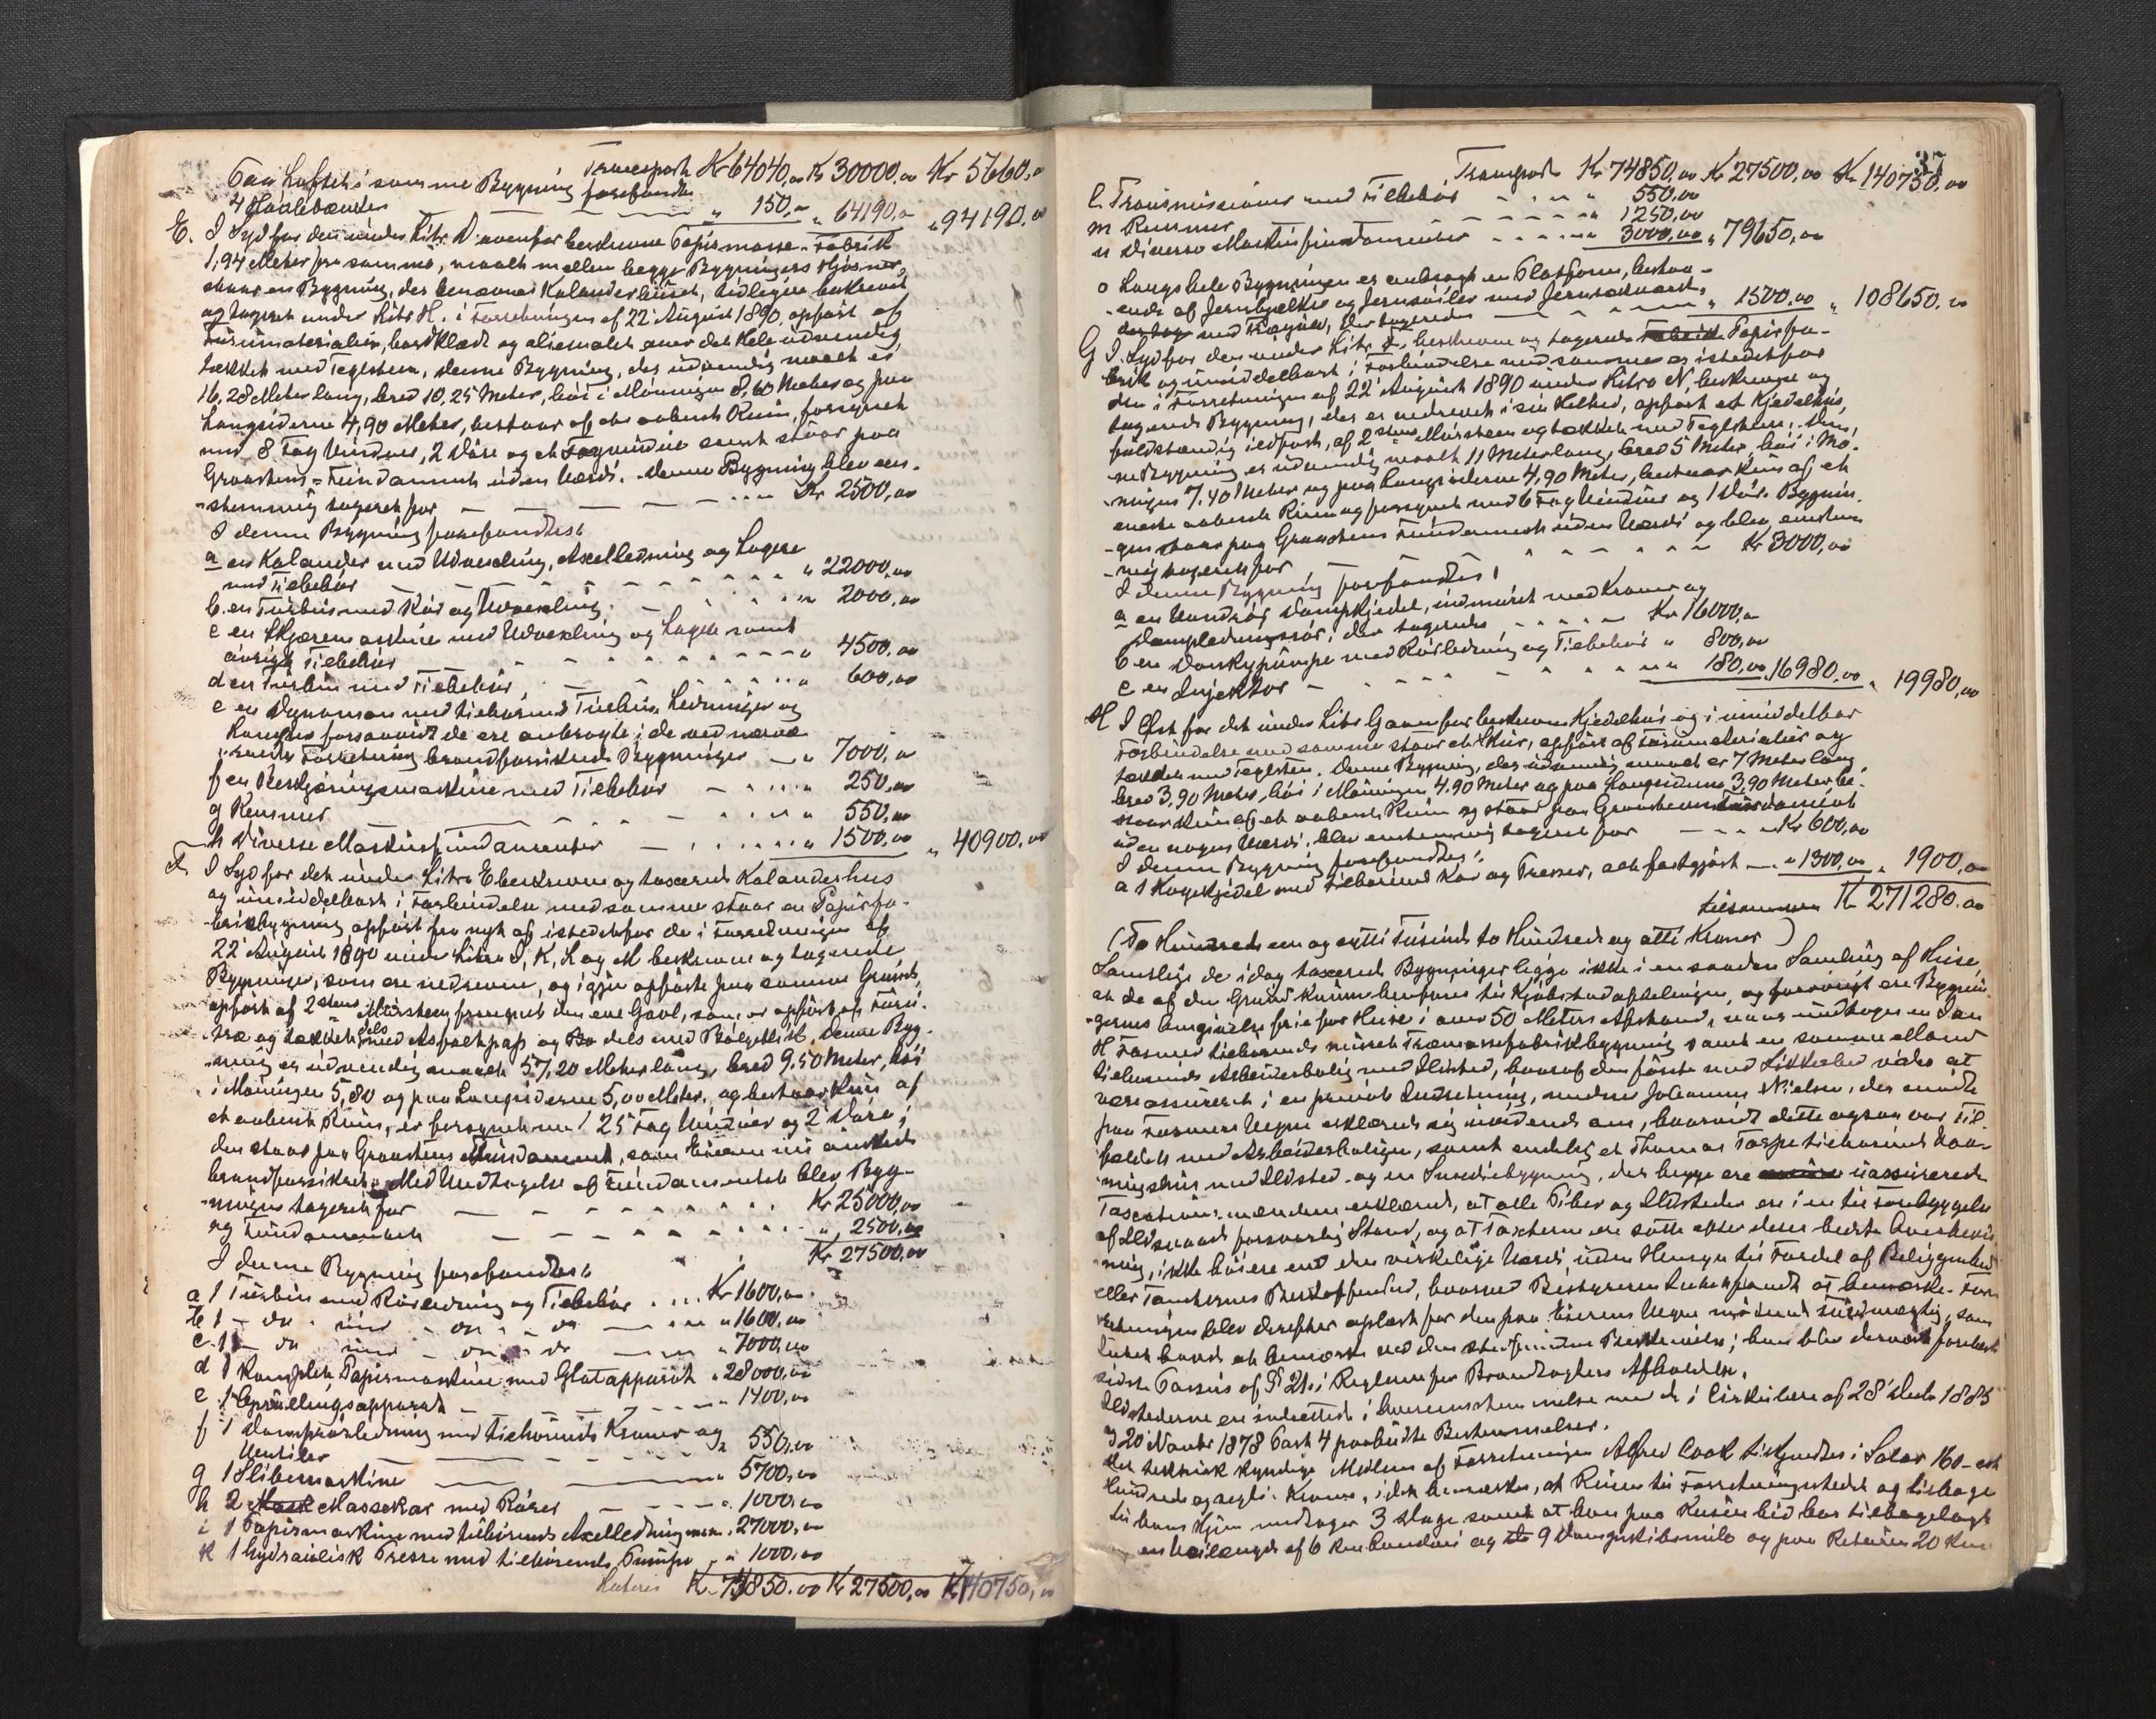 Transport Kr 64040,00 Kr 30000,00 Kr 5660,00
Paa Loftet i samme Bygning forefandtes
4 Høvlebænke " 150,00 " 64190,00 " 94190.00
E. I Syd for den under Litr. D ovenfor beskrevne Papirmasse-Fabrik
1,94 Meter fra samme, maalt mellem begge Bygningers Hjørner,
staar en Bygning, der benævnes Kalanderhuset, tidligere beskrevet
og taxeret under Litr H. i Forretningen af 22 August 1890, opført af
Furumaterialier, bordklædt og oliemalet over det Hele udvendig,
tækket med Teglsteen, denne Bygning, der udvendig maalt er
16,28 Meter lang, bred 10,25 Meter, høi i Møningen 8,60 Meter og paa
Langsiderne 4,90 Meter, bestaar af et aabent Rum, forsynet
med 8 Fag Vinduer, 2 Døre og et Fagvindue samt staar paa
Graastens-Fundament uden Værdi. Denne Bygning blev een-
-stemmig taxeret for Kr 2500,00
I denne Bygning forefandtes:
a en Kalander med Udvexling, Axelledning og Lagere
med Tilbehør " 22000,00
b. en Turbin med Rør og Udvexling " 2000,00
c en Skjæremaskine med Udvexling og Lagere samt
øvrigt Tilbehør " 4500.00
d en Turbin med Tilbehør " 600,00
e en Dynamo med tilhørende Turbin, Ledninger og
Lamper forsaavidt de ere anbragte i de ved nærvæ-
-rende Forretning brandforsikrede Bygninger " 7000,00
f en Perforeringsmaskine med Tilbehør " 250,00
g Remmer " 550,00
h Diverse Maskinfundamenter " 1500.00 " 40900.00
F. I Syd for det under Litra E beskrevne og taxerede Kalanderhus
og umiddelbart i Forbindelse med samme staar en Papirfa-
-brikbygning opført fra nyt af istedetfor de i Forretningen af
22 August 1890 under Litra I, K, L og M beskrevne og taxerede
Bygninger, som ere nedrevne, og igjen opførte paa samme Grund,
opført af 2 stens Mursteen forsynet den ene Gavl, som er opført af Furu-
træ og tækket dels med Asfaltpap og dels med Bølgeblik. Denne Byg-
-ning er udvendig maalt 57,20 Meter lang, bred 9,50 Meter, høi
i Møningen 5,80 og paa Langsiderne 5,00 Meter, og bestaar kun af
et aabent Rum, er forsynet med 25 Fag Vinduer og 2 Døre;
den staar paa Graastens Fundament, som Eieren nu ønsked
brandforsikret. Med Undtagelse af Fundamentet blev Byg-
-ningen taxeret for Kr 25000,00
og Fundamentet " 2500,00
Kr 27500,00
I denne Bygning forefandtes:
a 1 Turbin med Rørledning og Tilbehør Kr 1600,00
b 1 - do - med - do - do " 1600,00
c 1 - do med - do - do " 7000,00
d 1 komplet Papirmaskine med Glatapparat " 28000,00
e 1 Oprullingsapparat " 1400,00
f 1 Damprørledning med tilhørende Kraner og
Ventiler " 550,00
g 1 Slibemaskine " 5700,00
h 2 Massekar med Rører " 1000,00
i 1 Papirmaskine med tilhørende Axelledning " 27000,00
k 1 hydraulisk Presse med tilhørende Pumpe " 1000,00
Lateris Kr 74850.00 Kr 27500,00 Kr 140750,00
37
Transport Kr 74850,00 Kr 27500,00 Kr 140750,00
l. Transmissioner med Tilbehør " 550,00
m Remmer " 1250,00
n Diverse Maskinfundamenter " 3000,00 " 79650,00
o Langs hele Bygningen er anbragt en Platform, bestaa-
-ende af Jernbjelker og Jernsøiler med Jernrækværk,
med Trægulv, der taxeredes " 1500,00 " 108650.00
G I Syd for den under Litr F. beskrevne og taxerede Papirfa-
brik og umiddelbart i Forbindelse med samme og istedetfor
den i Forretningen af 22 August 1890 under Litra N. beskrevne og
taxerede Bygning, der er nedrevet i sin Helhed, opført et Kjedelhus,
fuldstændig ildfast, af 2 stens Mursteen og tækket med Teglsteen. Den-
ne Bygning er udvendig maalt 11 Meter lang, bred 5 Meter, høi i Mø-
-ningen 7.40 Meter og paa Langsiderne 4,90 Meter, bestaar kun af et
eneste aabent Rum og forsynet med 6 Fag Vinduer og 1 Dør. Bygnin-
-gen staar paa Graastens Fundament uden Værdi og blev enstem-
-mig taxeret for Kr 3000,00
I denne Bygning forefandtes:
a en Vandrør Dampkjedel, indmuret med Kraner og
Dampledningsrør, der taxeredes Kr 16000,00
b en Donkypumpe med Rørledning og Tilbehør " 800,00
c en Injektor " 180,00 16980,00 " 19980,00
H I Øst for det under Litr G ovenfor beskrevne Kjedelhus og i umiddelbar
Forbindelse med samme staar et Skur, opført af Furumaterialier og
tækket med Teglsten. Denne Bygning, der udvendig maalt er 7 Meter lang,
bred 3,90 Meter, høi i Møningen 4.90 Meter og paa Langsiderne 3,90 Meter, be-
staar kun af et aabent Rum og staar paa Graastens Fundament
uden nogen Værdi, blev enstemmig taxeret for Kr 600,00
I denne Bygning forefandtes:
a 1 Kogekjedel med tilhørende Kar og Presser, alt fastgjort " 1300,00 " 1900,00
tilsammen Kr 271280.00
(To Hundrede een og sytti Tusinde to Hundrede og otti Kroner)
Samtlige de idag taxerede Bygninger ligge ikke i en saadan Samling af Huse,
at de af den Grund kunne henføres til Kjøbstadafdelingen, og forøvrigt ere Bygnin-
gernes Omgivelser frie for Huse i over 50 Meters Afstand, naar undtages en Dan
H Fasmer tilhørende nævnte Træmassefabrikbygning samt en samme Mand
tilhørende Arbeiderbolig med Ildsted, hvoraf den første med Sikkerhed vides at
være assureret i en privat Indretning, medens Johannes Nielsen, der mødte
paa Fasmers Vegne erklærede sig uvidende om, hvorvidt dette ogsaa var Til-
fældet med Arbeiderboligen, samt endelig et Thomas Torpe tilhørende Vaa-
ningshus med Ildsted og en Smediebygning, der begge ere uassurerede.
Taxationsmændene erklærede, at alle Piber og Ildsteder ere i en til Forebyggelse
af Ildsvaade forsvarlig Stand, og at Taxterne ere satte efter deres bedste Overbevis-
-ning, ikke høiere end den virkelige Værdi uden Hensyn til Fordel af Beliggenhed
eller Tomternes Beskaffenhed, hvorved Bestyreren Intet fandt at bemærke. For-
retningen blev derefter oplæst for den paa Eierens Vegne mødende Fuldmægtig, som
Intet havde at bemærke ved den stedfundne Beskrivelse; han blev dernæst forelæst
sidste Passus af § 21. i Reglerne for Brandtaxters Afholdelse.
Ildstederne ere indrettede i Overensstemmelse med de i Cirkulære af 28 1885
og 20 Novbr 1878 Post 4 paabudte Bestemmelser.
Det teknisk kyndige Medlem af Forretningen Alfred Cook tilkjendtes i Salær 160 - et
Hundrede og sexti - Kroner, idet bemærkes, at Reisen til Forretningsstedet og tilbage
til hans Hjem medtager 3 Dage samt at han paa Reisen hid har tilbagelagt
en Veilængde af 6 km landvei og 9 Dampskibsmile og paa Retouren 20 Km